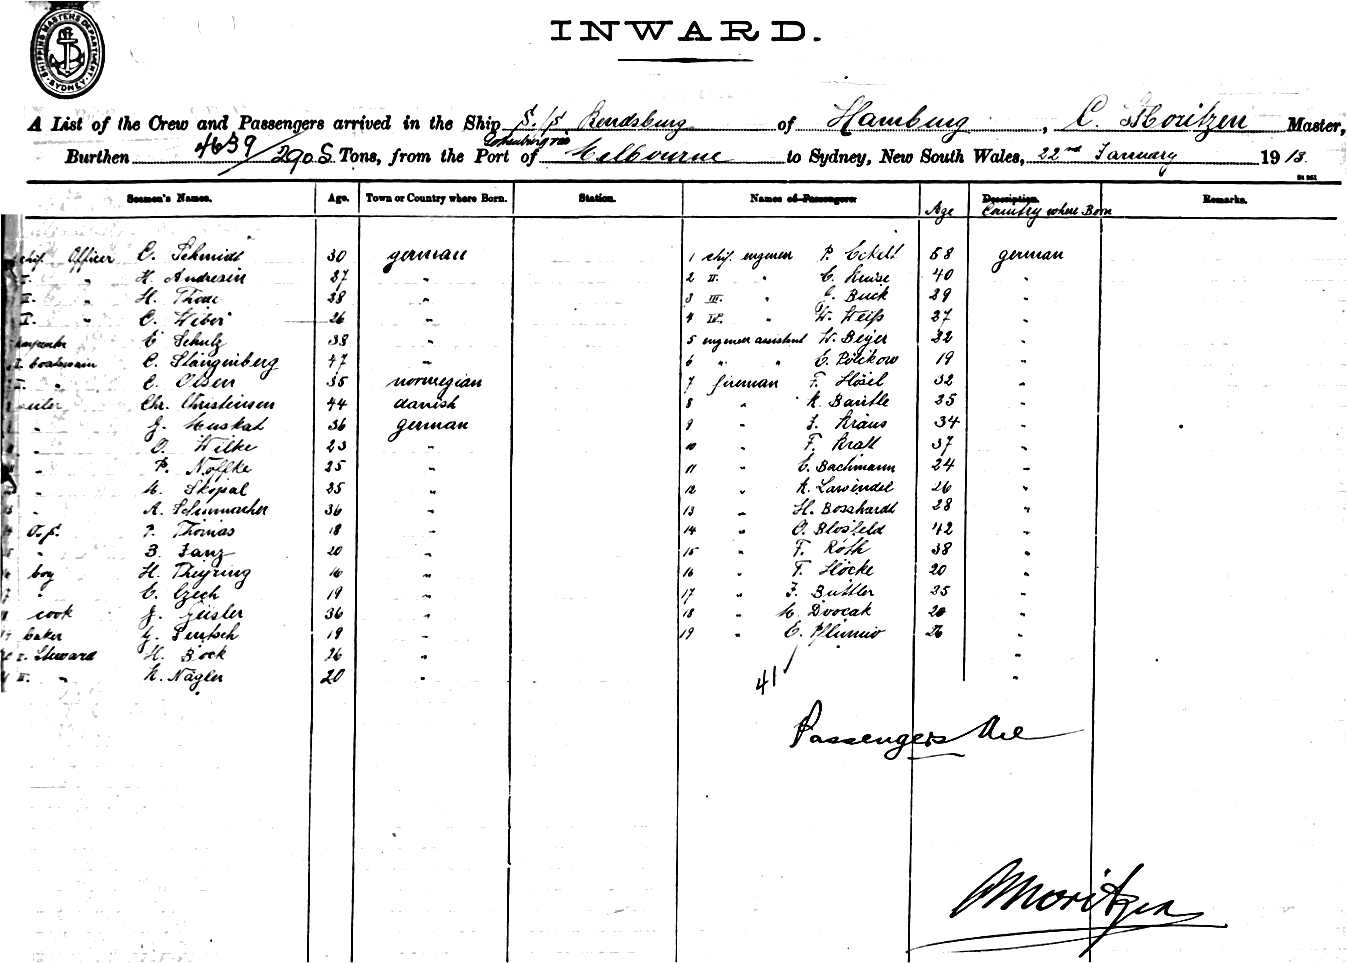 SHIPPING MASTERS DEPARTMENT SYDNEY
INWARD.
A List of the Crew and Passengers arrived in the Ship S. S Rendsburg of Hamburg, C. Moritzen Master,
Burthen 4639/290 S Tons, from the Port of Melbourne to Sydney, New South Wales, 22nd January 1913.
Seamen's Names. Age. Town or Country where Born. Station. Names of Passengers Age Description. Country where Born Remarks.
chif Officer C. Schmidt 30 german 1 chif. engineer P. Eckelt 58 german
" H. Andresen 37 " 2 II. " C. Kruse 40 "
II. " H. Thode 38 " 3 III. " J. Buck 29 "
" C. Weber 26 " 4 IV. " W. Weiss 37 "
C Schulz 38 " 5 engineer assistent W. Beyer 32 "
I. boatswain C. Stangenberg 47 " 6 " " C. Pölikow 19 "
" C. Olsen 35 norwegian 7 fireman F. Hösel 32 "
Chr. Christensen 44 danish 8 " K. Bantle 25 "
" J. Muskat 36 german 9 " J. Kraus 34 "
" O. Wilke 23 " 10 " F. Kratt 37 "
" P. Noffke 25 " 11 " C. Bachmann 24 "
" M. Skopal 25 " 12 " K. Lawendel 26 "
" A. Schumacher 36 " 13 " H. Bosshardt 28 "
O.S. P. Thomas 18 " 14 " O. Blosfeld 42 "
" B. Janz 20 " 15 " F. Roth 38 "
boy H. Theyring 16 " 16 " F. Höcke 20 "
" C. Czech 19 " 17 " J. Büttler 25 "
cook J. Geisler 36 " 18 " M. Dvocak 20 "
baker G. Jentsch 19 " 19 " C. Pflumio 26 "
I. Steward H. Bock 26 " "
II. " K. Nagler 20 " "
41
Passengers Nil
C Moritzen